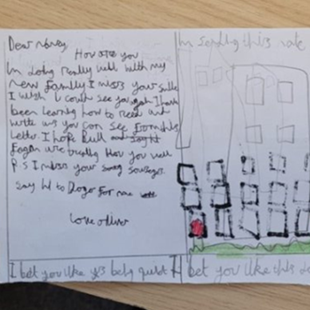 Dear Nancy
How are you
Im doing really well with my
new family I miss your smile
I wish I could see you I have
been learning how to read and
write as you can see from this
letter. I hope Bull and
Fagan are treating you well
P S I miss your sausages
Say hi to Doge for me
love oliver
Im sending this note
I bet you like this being quiet
I bet you like this